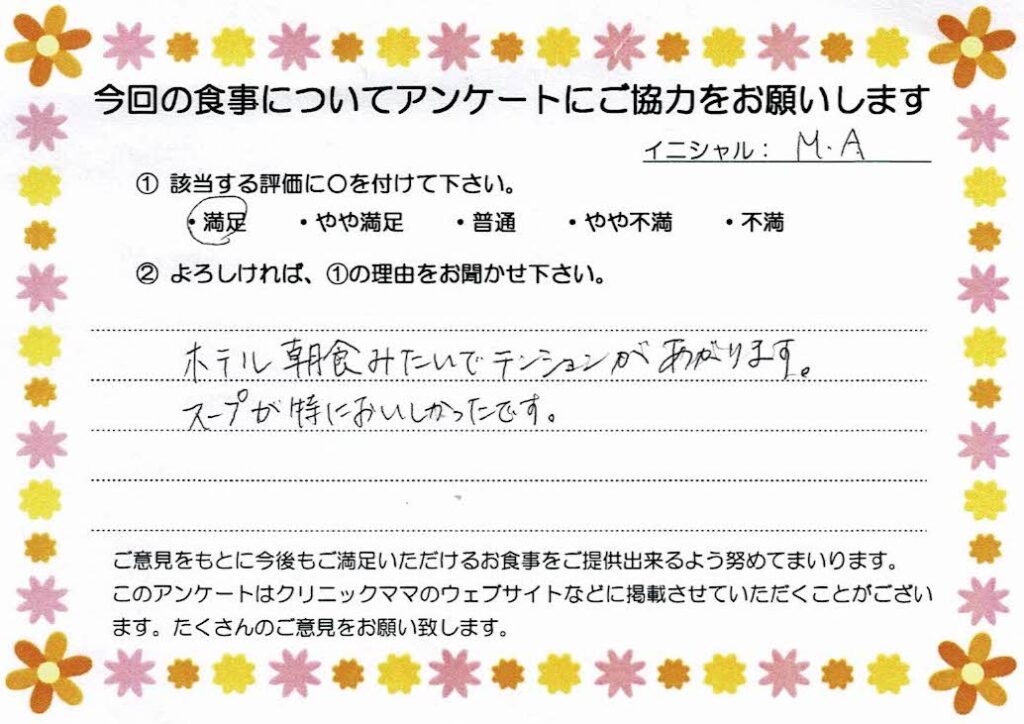 今回の食事についてアンケートにご協力をお願いします
イニシャル： M.A
① 該当する評価に〇を付けて下さい。
・満足 ・やや満足 ・普通 ・やや不満 ・不満
② よろしければ、①の理由をお聞かせ下さい。
ホテル朝食みたいでテンションがあがります。
スープが特においしかったです。
ご意見をもとに今後もご満足いただけるお食事をご提供出来るよう努めてまいります。
このアンケートはクリニックママのウェブサイトなどに掲載させていただくことがござい
ます。たくさんのご意見をお願い致します。